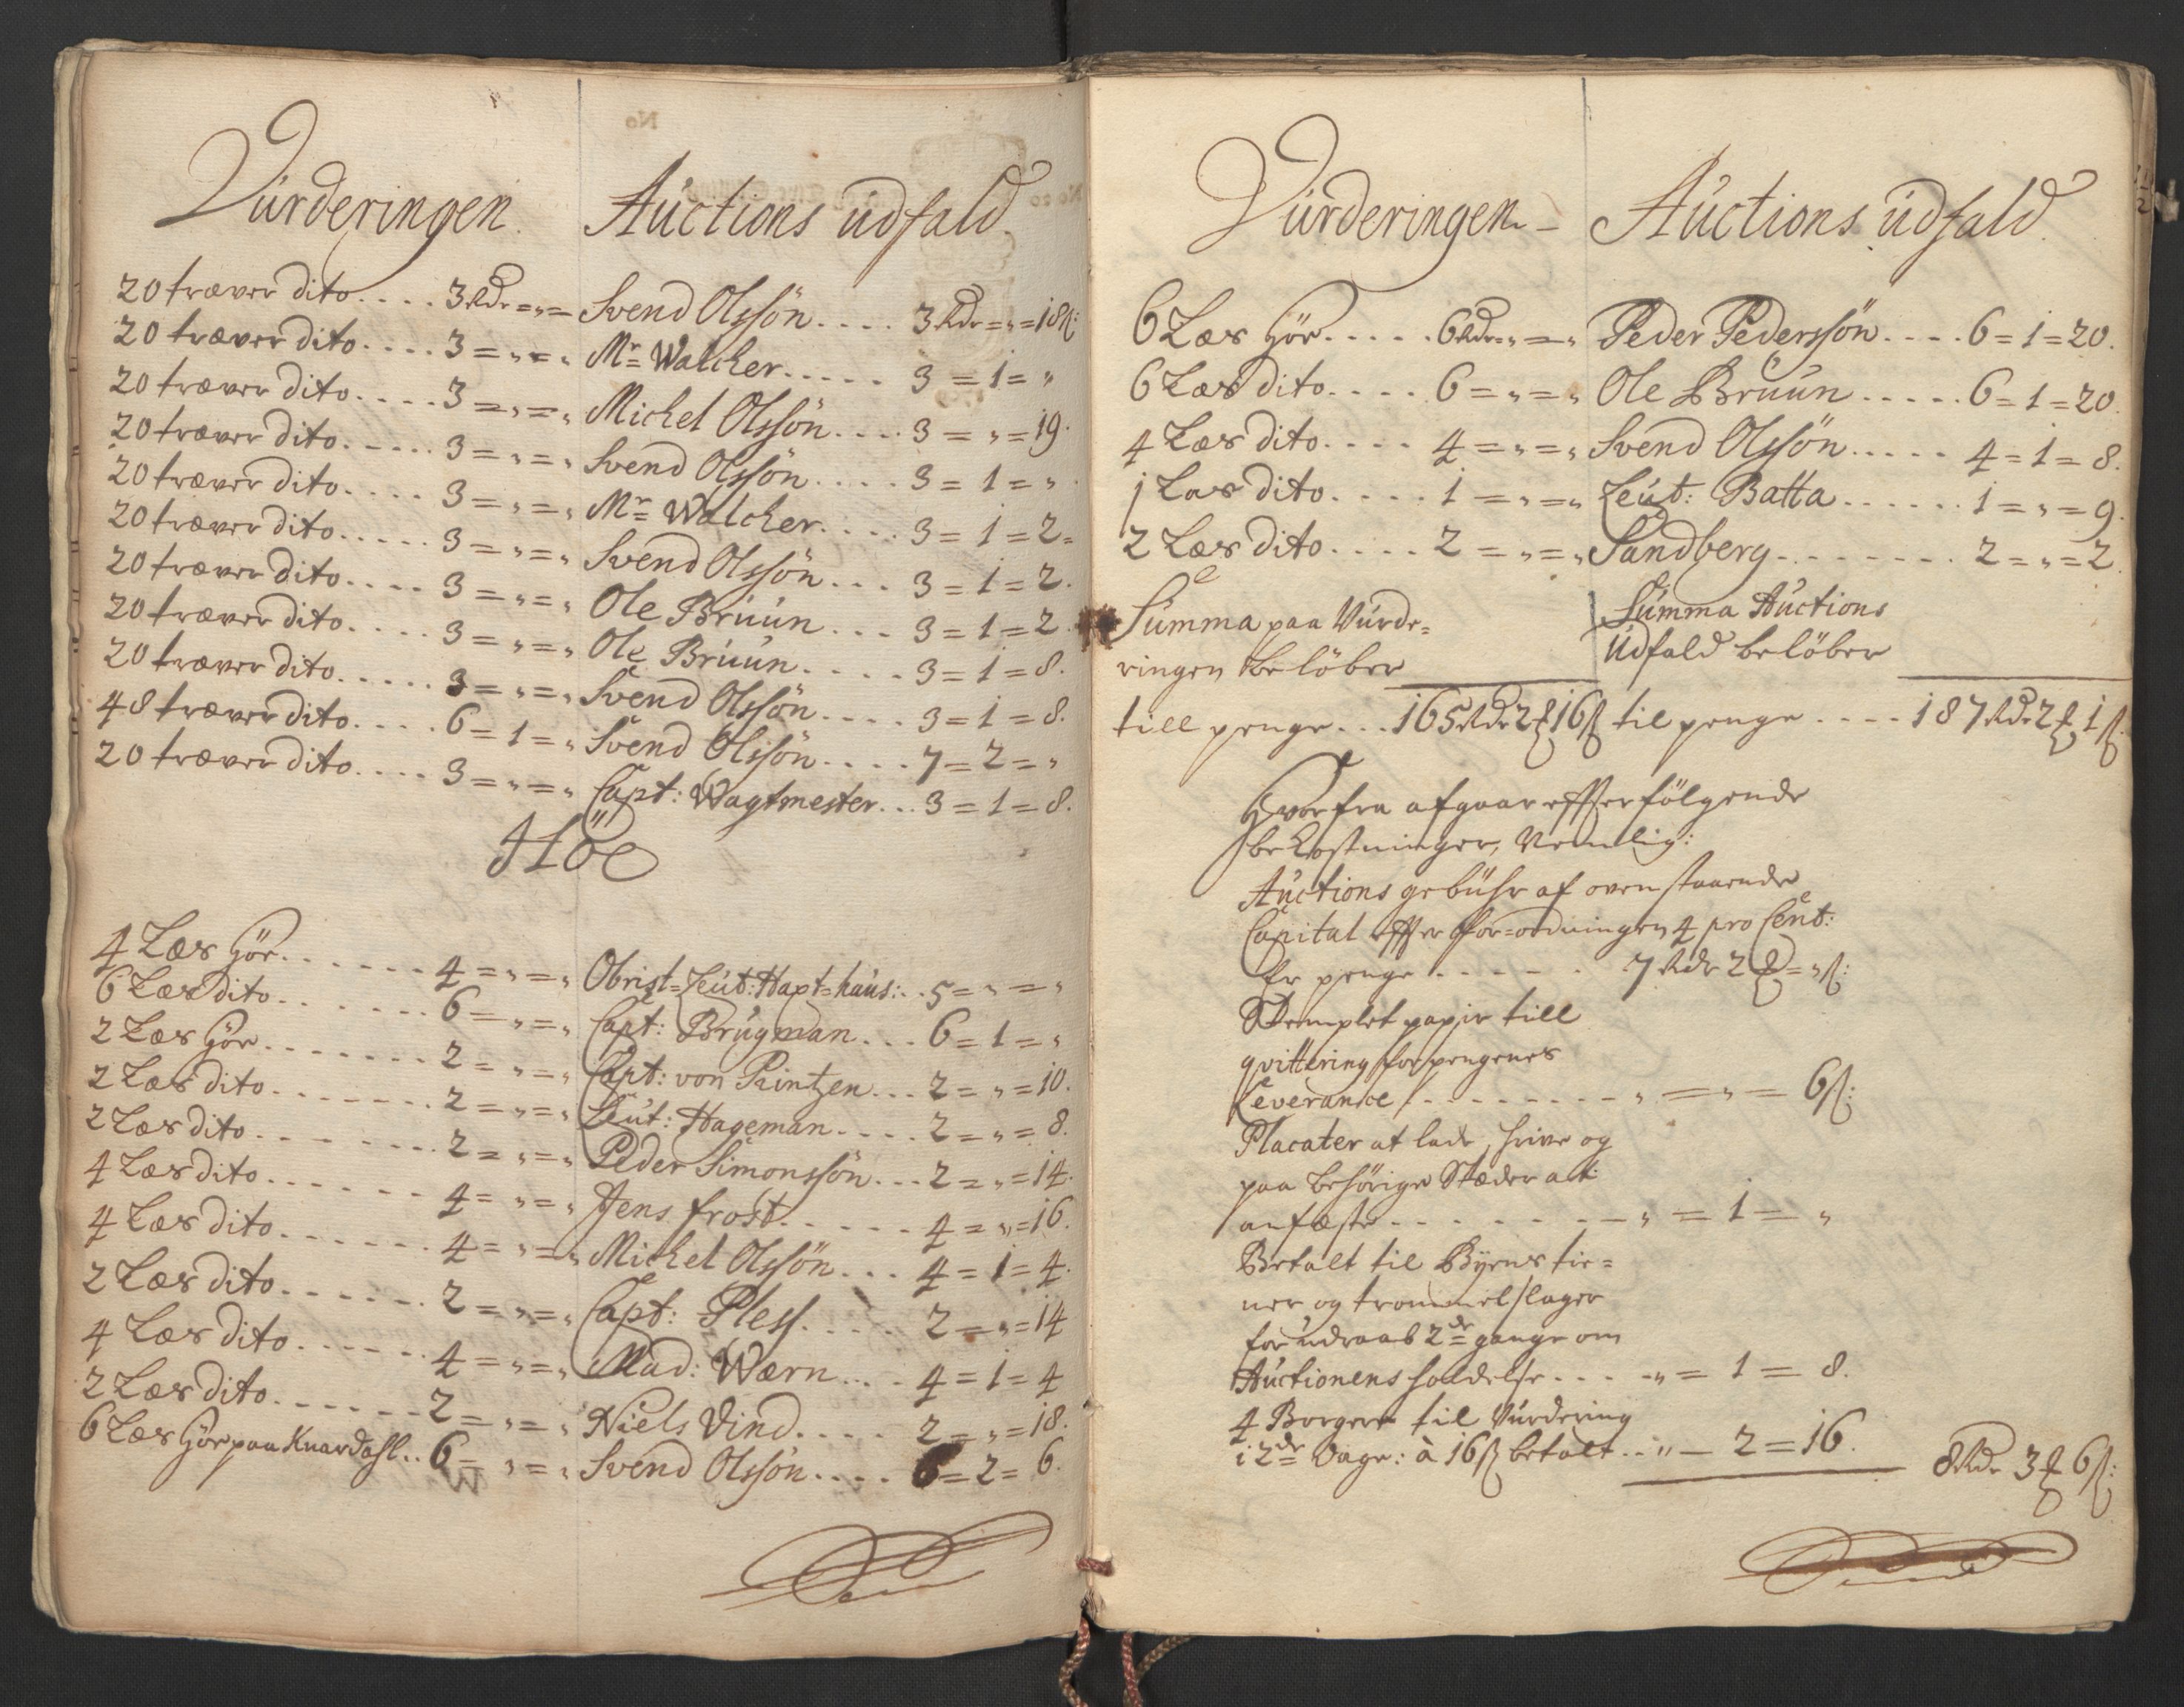 Vürderingen. Auctions üdfald.
20 træver dito .... 3 Rdr = „ = Svend Olssön .... 3 Rdr = „ = 18 ß:
20 træver dito .... 3 = „ = „ Mr Walcher ..... 3 = 1 = „
20 træver dito .... 3 = „ = „ Michel Olssön .... 3 = „ = 19.
20 træver dito .... 3 = „ = „ Svend Olssön .... 3 = 1 = „
20 træver dito .... 3 = „ = „ Mr Walcher .... 3 = 1 = 2 =
20 træver dito .... 3 = „ = „ Svend Olssön ... 3 = 1 = 2.
20 træver dito .... 3 = „ = „ Ole Brüün ... 3 = 1 = 2.
20 træver dito .... 3 = „ = „ Ole Brüün .... 3 = 1 = 8.
20 træver dito .... 3 = „ = „ Svend Olssön .... 3 = 1 = 8.
48 træver dito .... 6 = 1 = „ Svend Olssön .... 7 = 2 = „
20 træver dito .... 3 = „ = „ Capt: Wagtmester ... 3 = 1 = 8.
Höe
4 Læs Höe ...... 4 = „ = „ Obrist=Leüt: Hapt=haüs: .. 5 = „ = „
6 Læs dito ...... 6 = „ = „ Capt: Brügman ... 6 = 1 = „
2 Læs Höe ....... 2 = „ = „ Capt: von Printzen ... 2 = „ = 10.
2 Læs dito ....... 2 = „ = „ Leüt: Hageman .... 2 = „ = 8.
2 Læs dito ....... 2 = „ = „ Peder Simonssön ... 2 = „ = 14.
4 Læs dito ...... 4 = „ = „ Jens frost ..... 4 = „ = 16.
4 Læs dito ...... 4 = „ = „ Michel Olssön ... 4 = 1 = 4.
2 Læs dito ...... 2 = „ = „ Capt: Pless .... 2 = „ = 14
4 Læs dito ...... 4 = „ = „ Mad: Wærn ... 4 = 1 = 4
2 Læs dito ...... 2 = „ = „ Niels Vind .... 2 = „ = 18.
6 Læs Höe paa Knardahl .. 6 = „ = „ Svend Olssön .... 6 = 2 = 6.
Vürderingen – Auctions üdfald.
6 Læs Höe ..... 6 Rdr = „ = „ Peder Pederssön .... 6 = 1 = 20.
6 Læs dito .... 6 = „ = „ Ole Brüün ..... 6 = 1 = 20.
4 Læs dito .... 4 = „ = „ Svend Olssön ..... 4 = 1 = 8.
1 Læs dito .... 1 = „ = „ Leüt: Batta ...... 1 = „ = 9.
2 Læs dito .... 2 = „ = „ Sandberg ........ 2 = „ = 2.
Summa paa Vürde= Summa Auctions
ringen beløber Üdfald beløber
till penge ... 165 Rdr 2 ₰ 16 ß til penge .... 187 Rdr 2 ₰ 1 ß.
Hvorfra afgaar effterfölgende
bekostninger, Nemlig:
Auctions gebühr af ovenstaaende
Capital effter for=ordningen 4 pro Cent:
Er penge ...... 7 Rdr 2 ₰ = „ ß:
Stemplet papir till
qvittering for pengenes
Leverance ......... „ = „ = 6 ß:
Placater at lade skrive og
paa behörige Stæder at
anfæste ........ „ = 1 = „
Betalt til Byens tie=
ner og trommelslager
for üdraab 2de gange om
Auctionens holdelse .... „ = 1 = 8.
4 Borgere til Vürdering
i 2de Dage: à 16 ß betalt .. „ – 2 = 16. 8 Rdr 3 ₰ 6 ß: